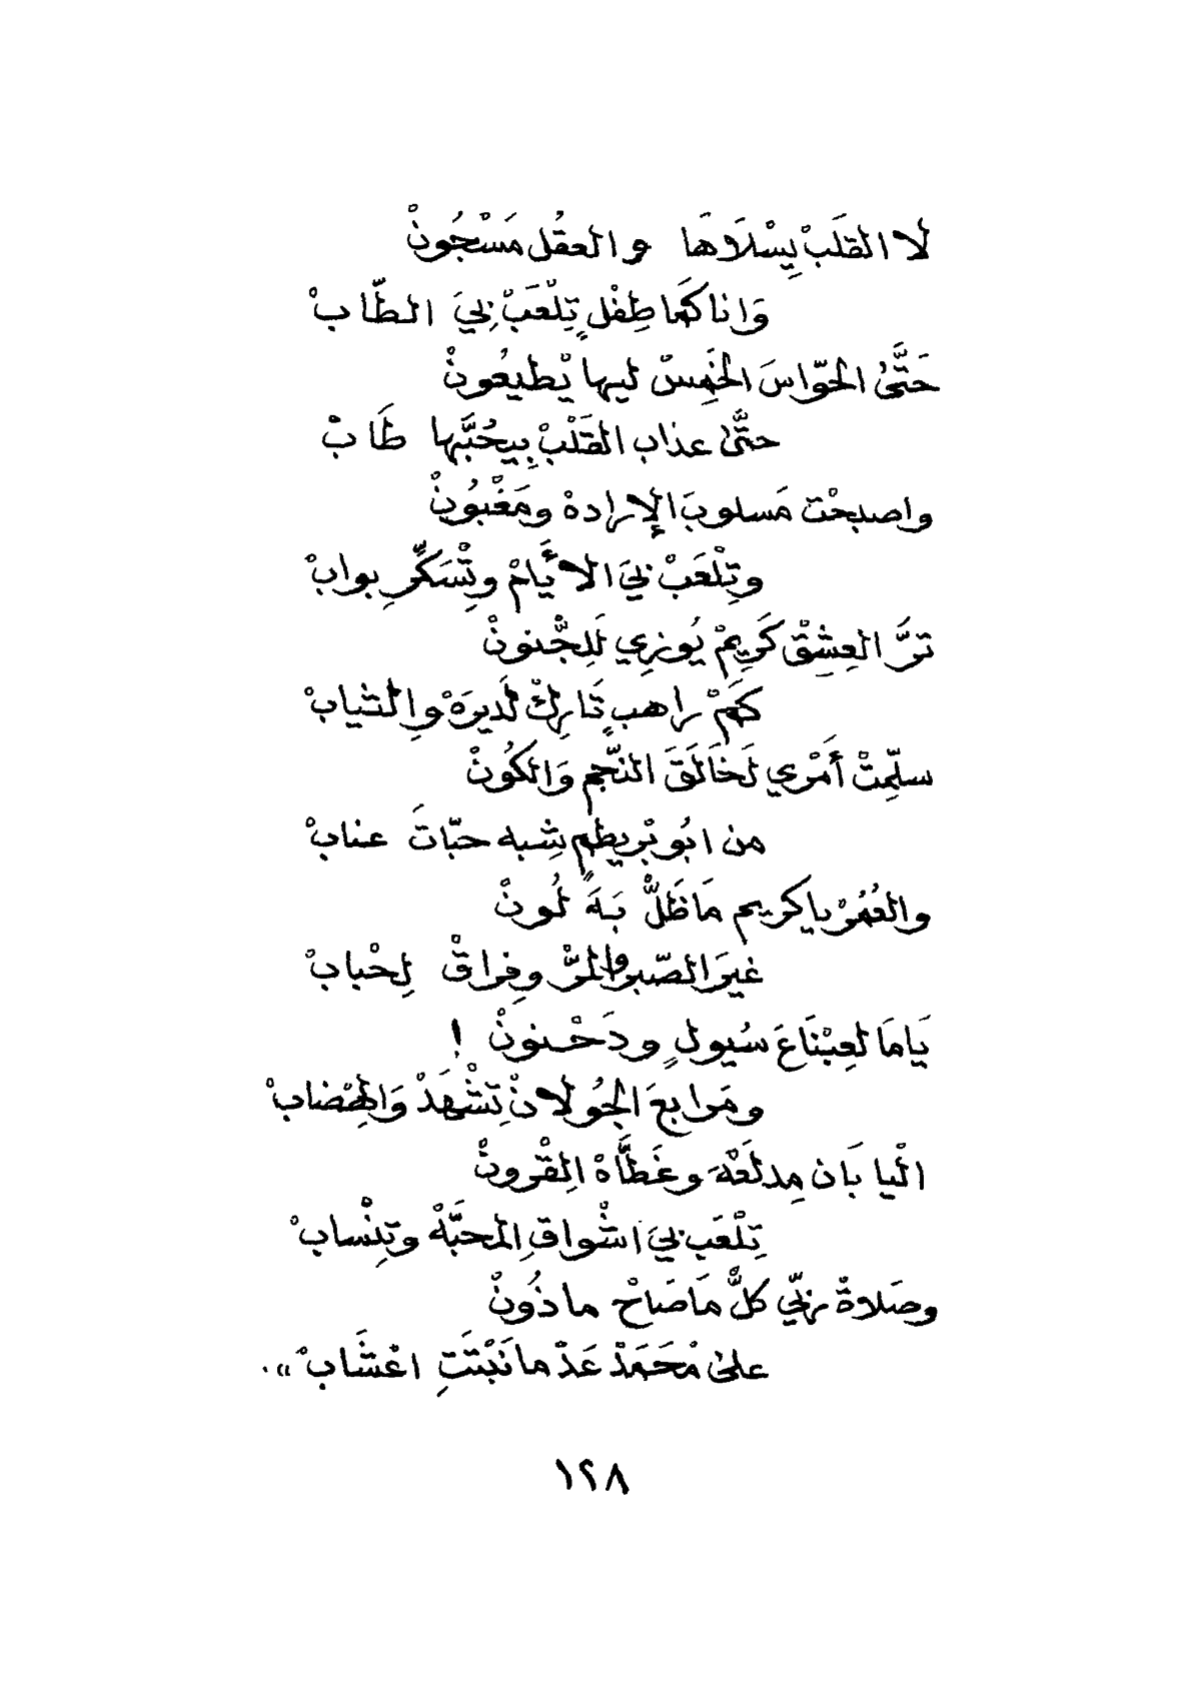 لا القلَبْ يِسْلاَهَا والعقُل مَسْجُونْ
وَانا كَمَا طِفْلٍ تِلْعَبْ بِيَ الطّابْ
حَتَّىُ الحَوّاسَ الخَمِسْ ليها يْطيعُونْ
حتَّىٰ عذاب القَلْبْ بِيحُبَّها طَابْ
واصبحْت مَسلوبَ الإرادهْ ومَغْبُونْ
وتِلْعَبْ بيَ الأيَامْ وتِْسَكِّرِ بوابْ
ترَّ العِشِقْ كَرِيمْ يُوزِي لَلِجْنونْ
كَمْ راهبٍ تَارِكْ لَديرَهْ وِالثيابْ
سلّمِتْ أَمْري لَخَالَقَ النّجم وَالكُونْ
من ابُو بْريطمٍ شِبه حبّاتَ عنابْ
والعُمُرْ يا كريم مَا ظَلّْ بَهَ لُونْ
غيرَ الصّبر والمرّْ وفِراقْ لِحْبابْ
يَامَا لعِبْنَاعَ سُيولٍ ودَحْنونْ !
ومَرابعَ الجُولانْ تِشْهَدْ وَالهِضابْ
الْيا بَان مِدلَعَهْ وغَطَّاهْ الِقْرونْ
تِلْعَب بيَ اشْواقِ المحبَّهْ وتِنْسابْ
وصَلاةْ ربّي كلّْ مَا صَاحْ ماذُونْ
علىٰ مْحَمَدْ عَدْ ما نَبْتَتِ اعْشَابْ».
١٢٨